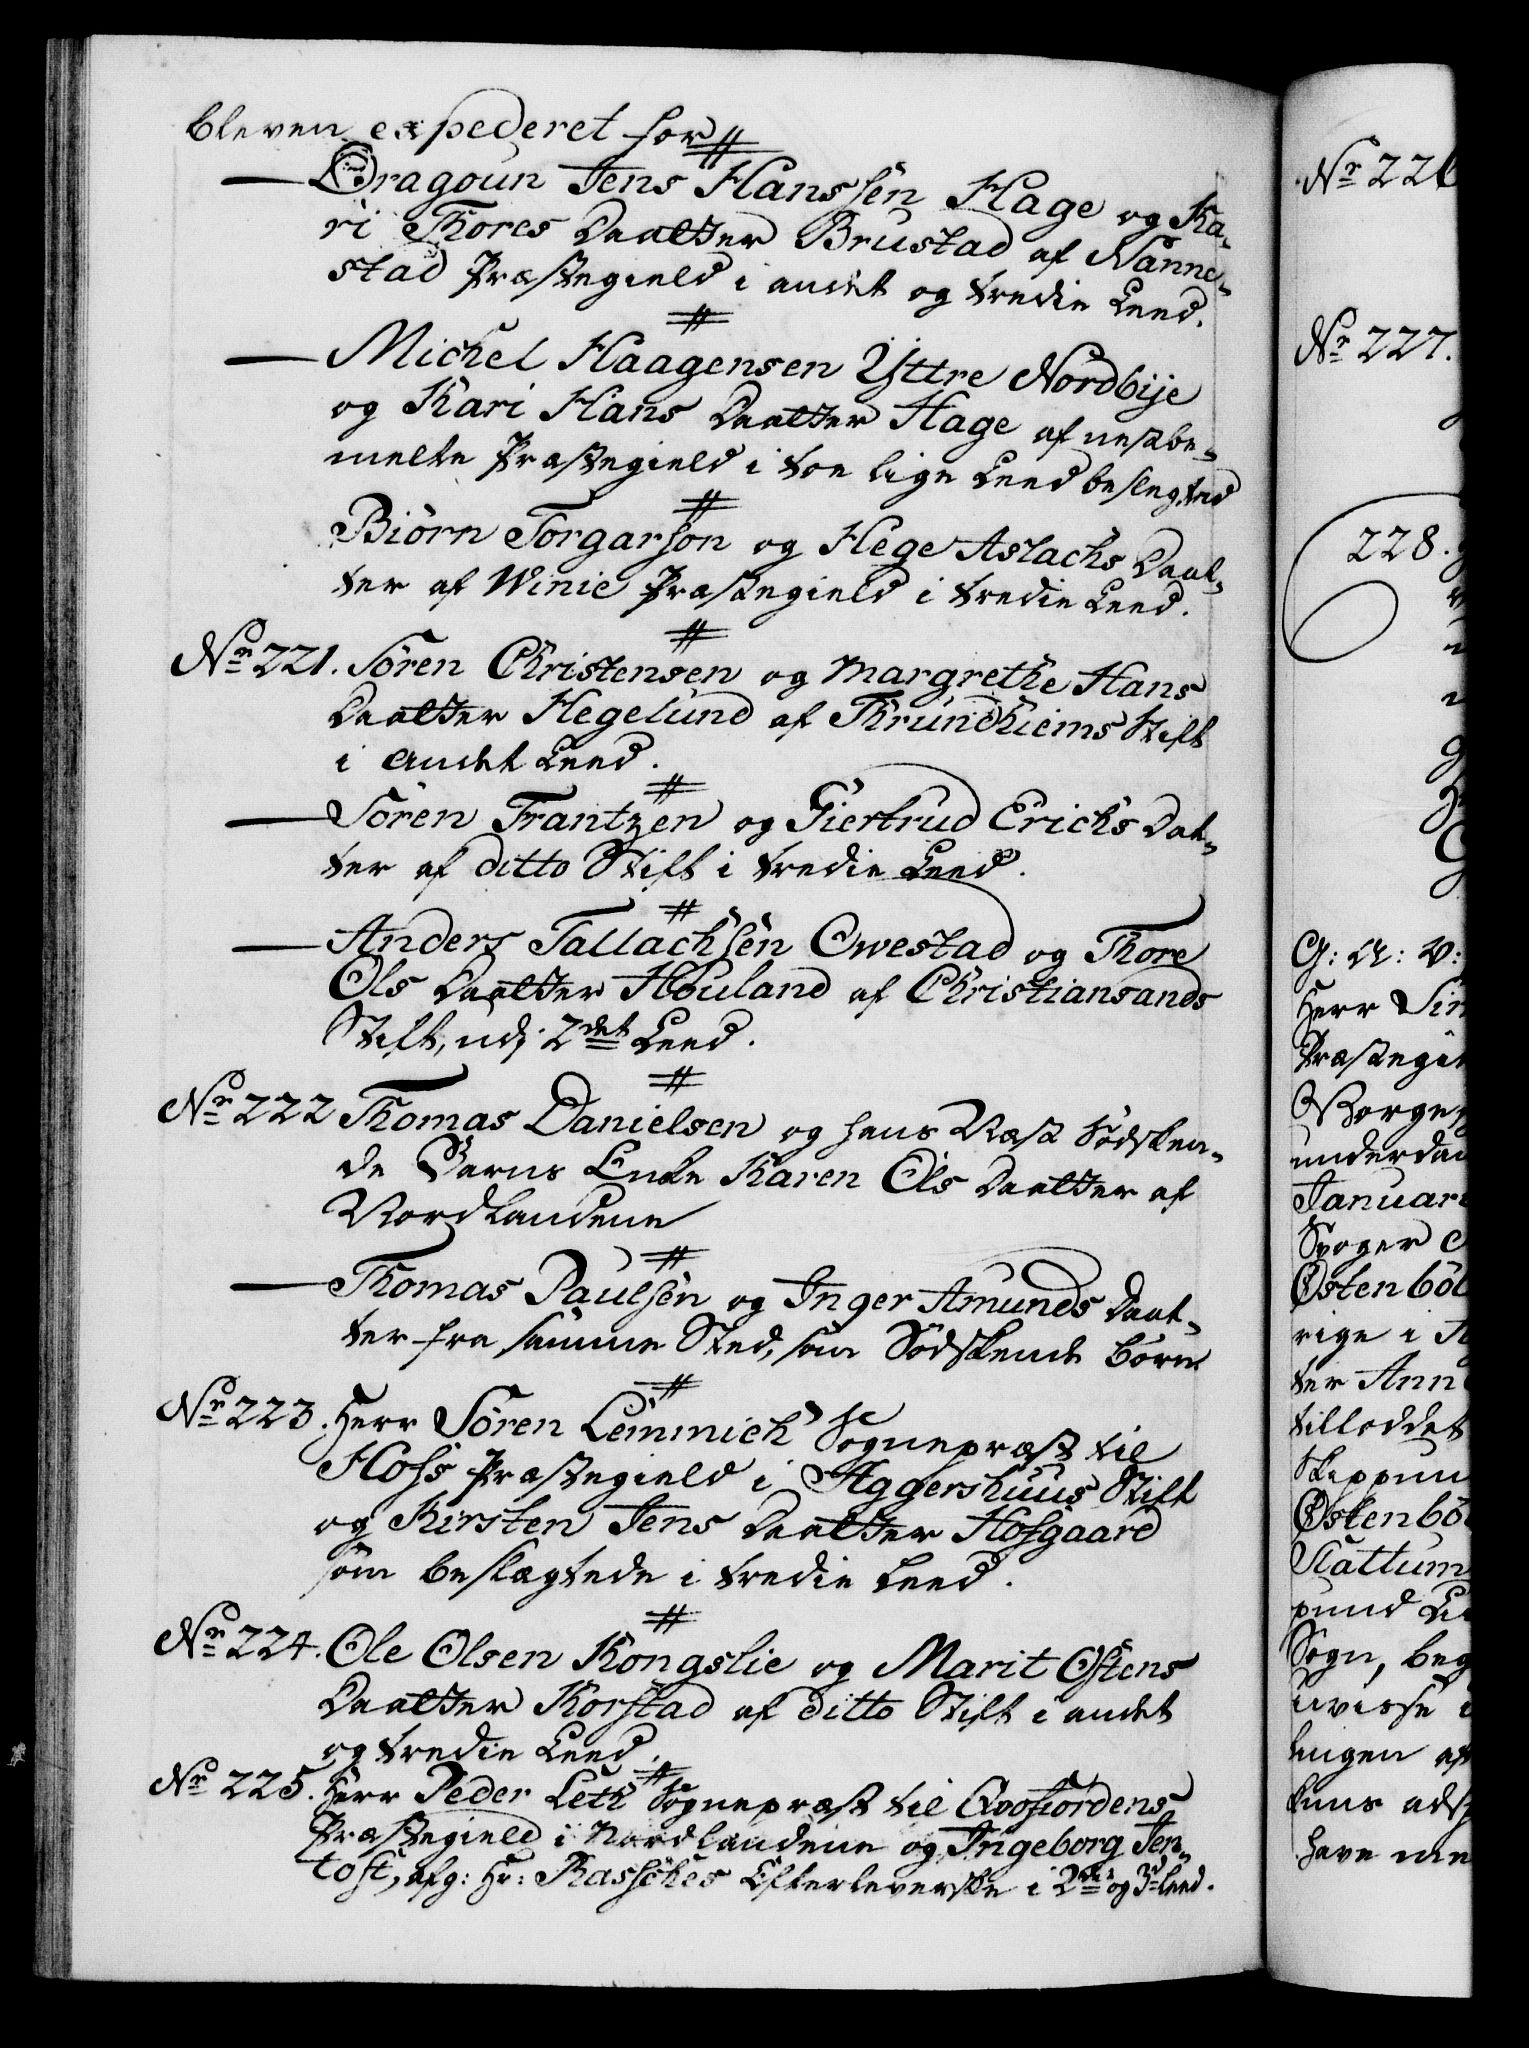 bleven expederet for
— Dragoun Jens Hanssen Hage og Ka-
ri Thores Daatter Brustad af Nanne-
stad Præstegield i andet og tredie Leed.
— Michel Haagensen Yttre Nordbije
og Kari Hans Daatter Hage af nestbe-
melte Præstegield i toe lige Leed beslegted
Biörn Torgarson og Hege Aslachs Daat-
ter af Winie Præstegield i tredie Leed.
No 221. Sören Christensen og Margrethe Hans
Daatter Hegelund af Thrundhiems Stift
i andet Leed.
— Sören Frantzen og Giertrud Erichs Dat-
ter af ditto Stift i tredie Leed.
— Anders Tallachsen Owestad og Thore
Ols Daatter Houland af Christiansands
Stift, udj 2det Leed.
No 222 Thomas Danielsen og hans Næst Södsken-
de Barns Enke Karen Ols Daatter af
Nordlandene
— Thomas Paulsen og Inger Amunds Daat-
ter fra samme Sted, som Södskende börn
No 223. Herr Sören Lemmich Sognepræst til
Hofs Præstegield i Aggershuus Stift
og Kirsten Jens Daatter Hofgaard
som beslægtede i tredie Leed.
No 224. Ole Olsen Kongslie og Marit Ostens
Daatter Korstad af ditto Stift i andet
og tredie Leed.
No 225. Herr Peder Leth Sognepræst til Qvofiordens
Præstegield i Nordlandene og Ingeborg Jen-
toft, afg: Hr: Rasches Efterleverske i 2det og 3die Leed.
No 226
No 227.
228.
G: A: V:
Herr Sin
Præstegi
Borge
underdan
Januari
Osten böl
rige i
ter Ann
tilloddet
Skippun
Osten bö
pund
Sogn, beg
uvisse
lingen af
have me